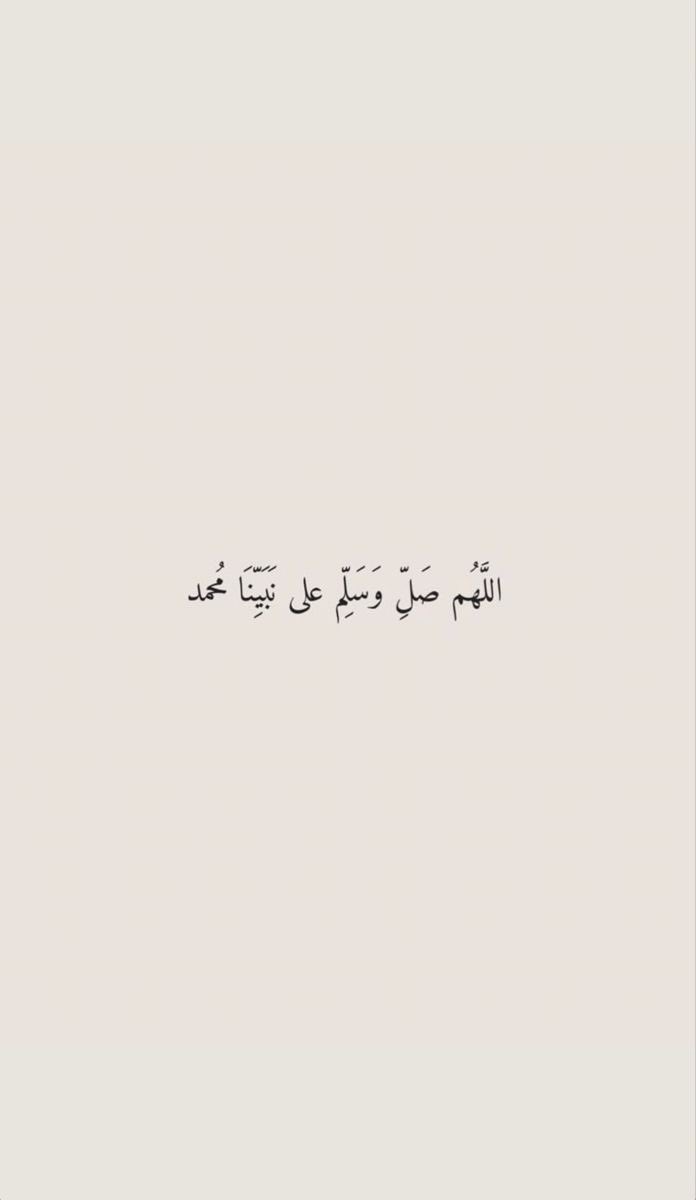 اللَّهُم صَلِّ وَسَلِّم على نَبَيِّنَا مُحمد